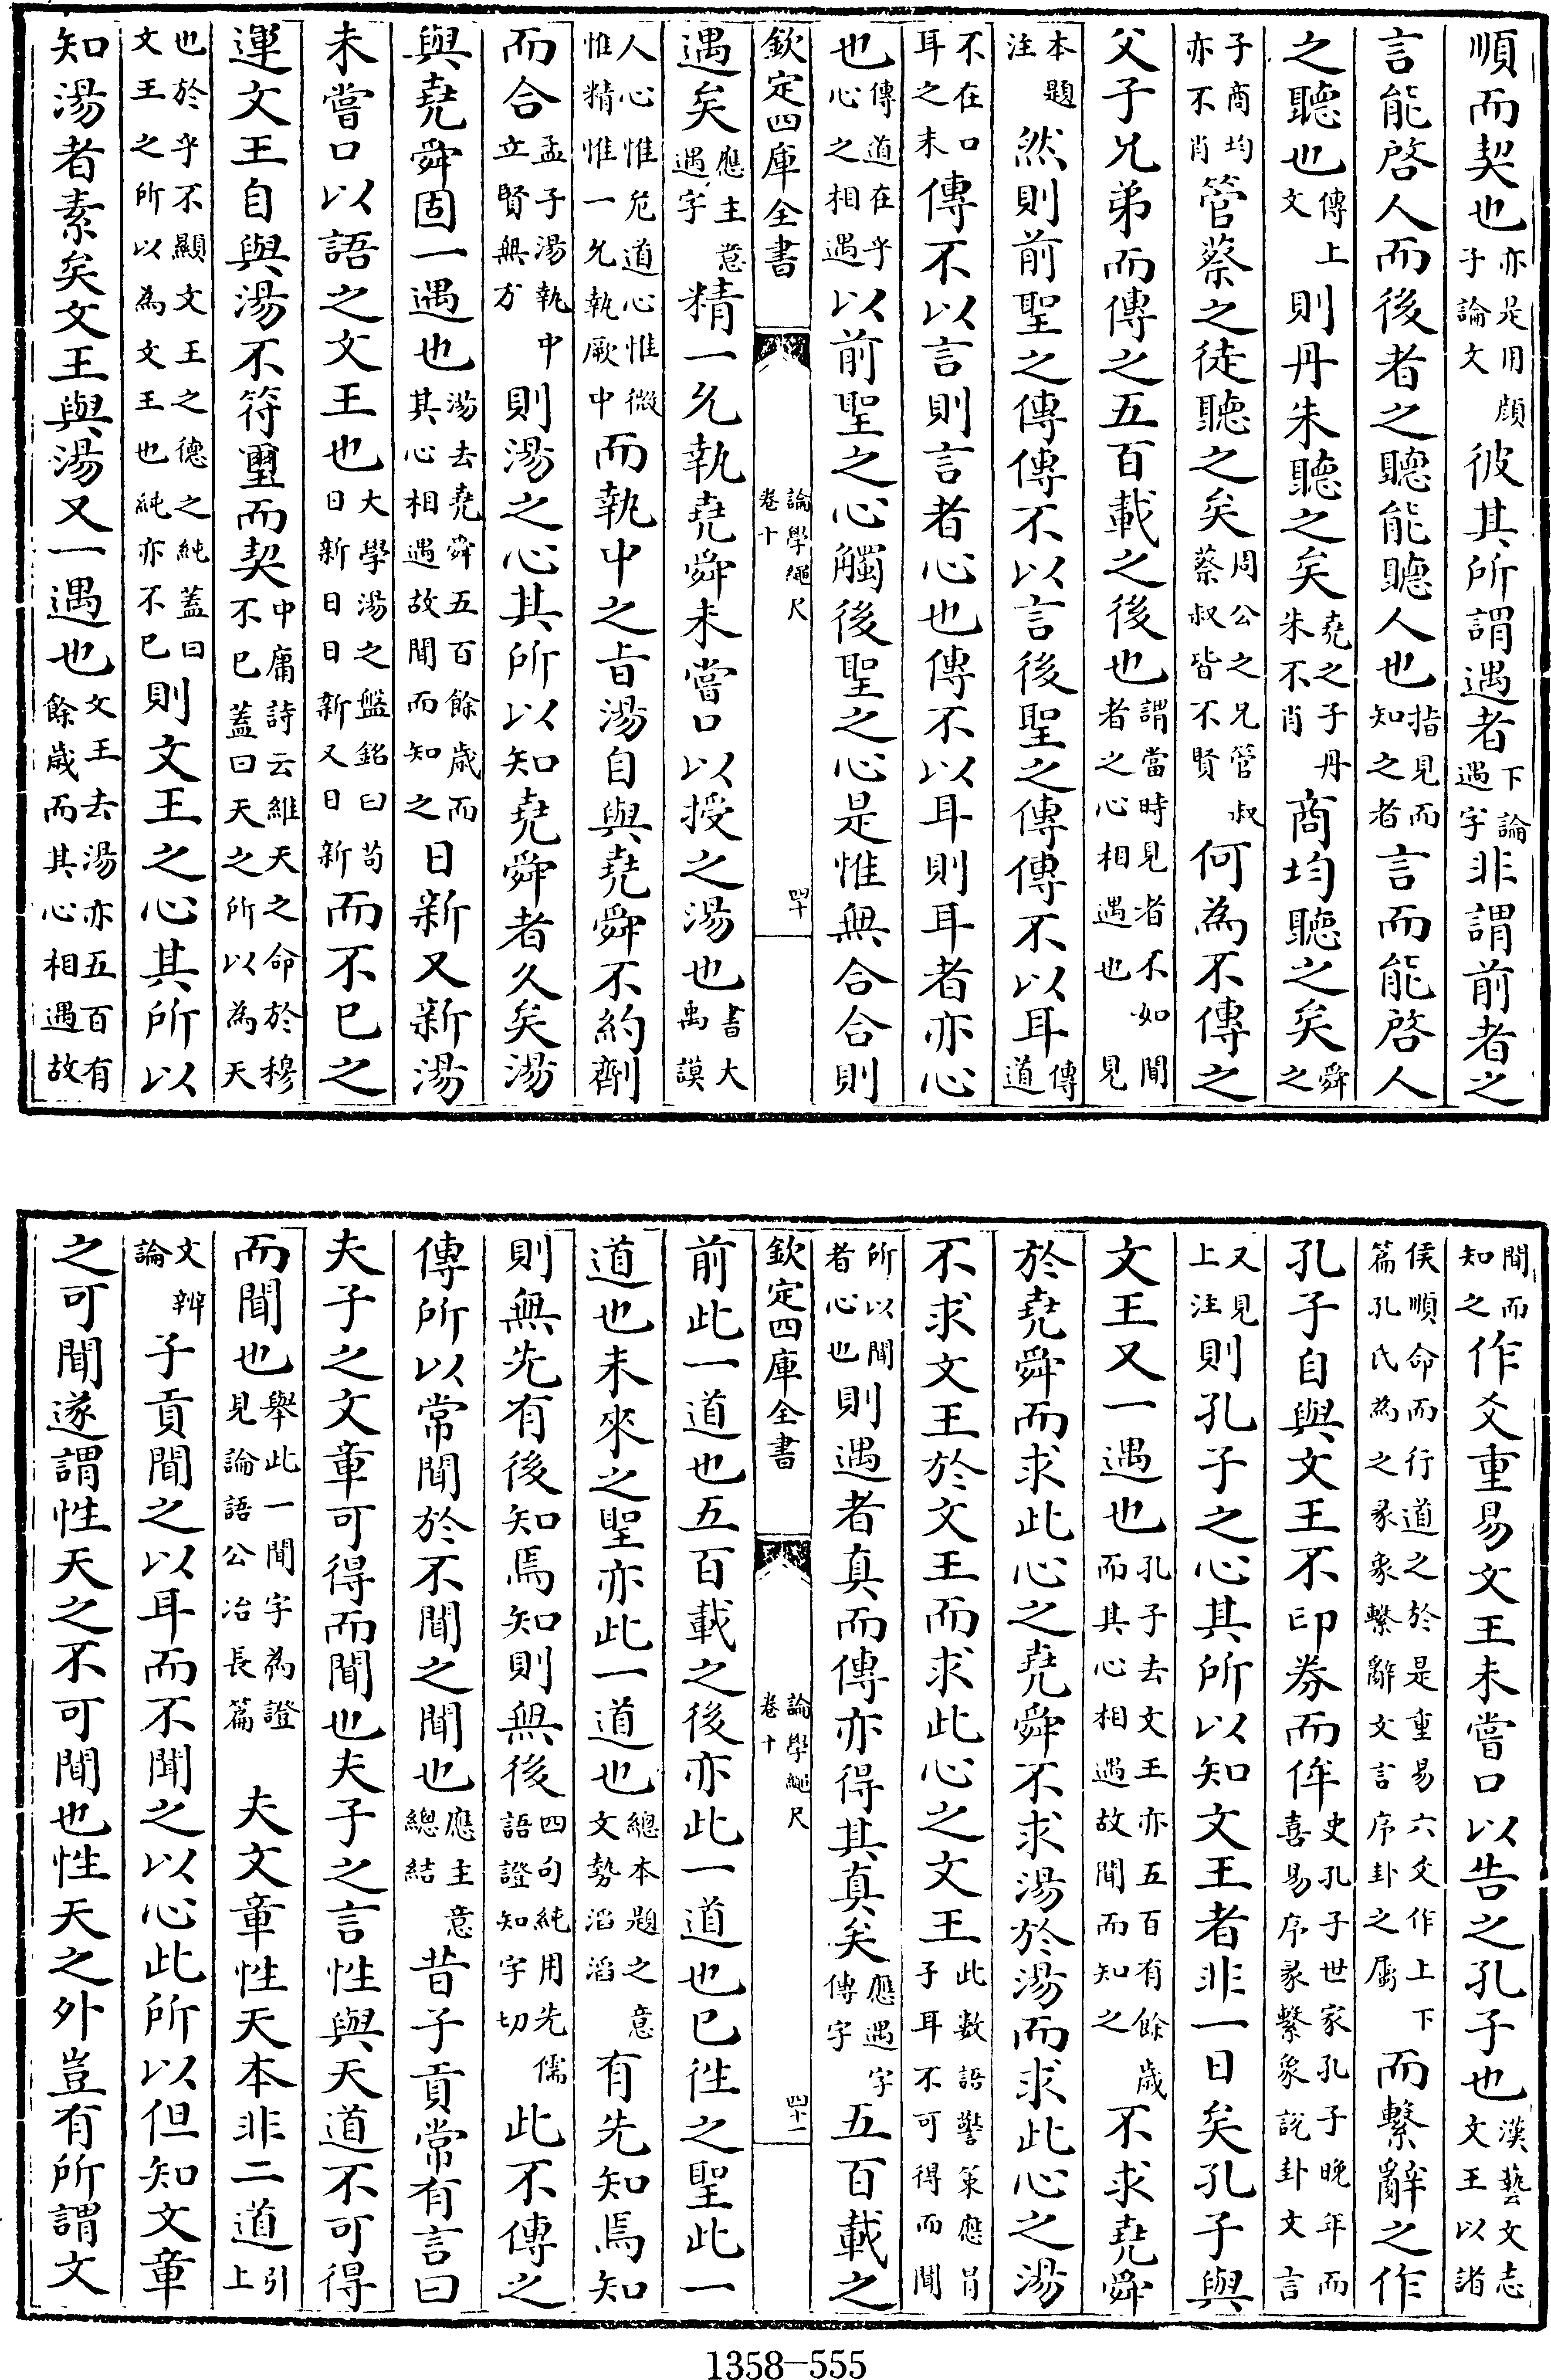 順而契也亦是用顔子論文彼其所謂遇者下論遇字非謂前者之
言能啓人而後者之聽能聽人也指見而知之者言而能啓人
之聽也傳上文則丹朱聽之矣堯之子丹朱不肖商均聽之矣舜之
子商均亦不肖管蔡之徒聽之矣周公之兄管叔蔡叔皆不賢何為不傳之
父子兄弟而傳之五百載之後也謂當時見者不如聞者之心相遇也見
本題注然則前聖之傳傳不以言後聖之傳傳不以耳傳道
不在口耳之末傳不以言則言者心也傳不以耳則耳者亦心
也傳道在乎心之相遇以前聖之心觸後聖之心是惟無合合則
欽定四庫全書 論學繩尺卷十 四十
遇矣應主意遇字精一允執堯舜未嘗口以授之湯也書大禹謨
人心惟危道心惟微惟精惟一允執厥中而執中之旨湯自與堯舜不約劑
而合孟子湯執中立賢無方則湯之心其所以知堯舜者久矣湯
與堯舜固一遇也湯去堯舜五百餘歲而其心相遇故聞而知之日新又新湯
未嘗口以語之文王也大學湯之盤銘曰苟日新日日新又日新而不已之
運文王自與湯不符璽而契中庸詩云維天之命於穆不已蓋曰天之所以為天
也於乎不顯文王之德之純蓋曰文王之所以為文王也純亦不已則文王之心其所以
知湯者素矣文王與湯又一遇也文王去湯亦五百有餘歲而其心相遇故
聞而知之作爻重易文王未嘗口以告之孔子也漢藝文志文王以諸
侯順命而行道之於是重易六爻作上下篇孔氏為之彖象繫辭文言序卦之屬而繫辭之作
孔子自與文王不印券而侔史孔子世家孔子晚年而喜易序彖繫象說卦文言
又見上注則孔子之心其所以知文王者非一日矣孔子與
文王又一遇也孔子去文王亦五百有餘歲而其心相遇故聞而知之不求堯舜
於堯舜而求此心之堯舜不求湯於湯而求此心之湯
不求文王於文王而求此心之文王此數語警策應冐子耳不可得而聞
所以聞者心也則遇者真而傳亦得其真矣應遇字傳字五百載之
欽定四庫全書 論學繩尺卷十 四十一
前此一道也五百載之後亦此一道也已徃之聖此一
道也未來之聖亦此一道也總本題之意文勢滔滔有先知焉知
則無先有後知焉知則無後四句純用先儒語證知字切此不傳之
傳所以常聞於不聞之聞也應主意總結昔子貢常有言曰
夫子之文章可得而聞也夫子之言性與天道不可得
而聞也舉此一聞字為證見論語公冶長篇夫文章性天本非二道引上
文辨論子貢聞之以耳而不聞之以心此所以但知文章
之可聞遂謂性天之不可聞也性天之外豈有所謂文
1358—555